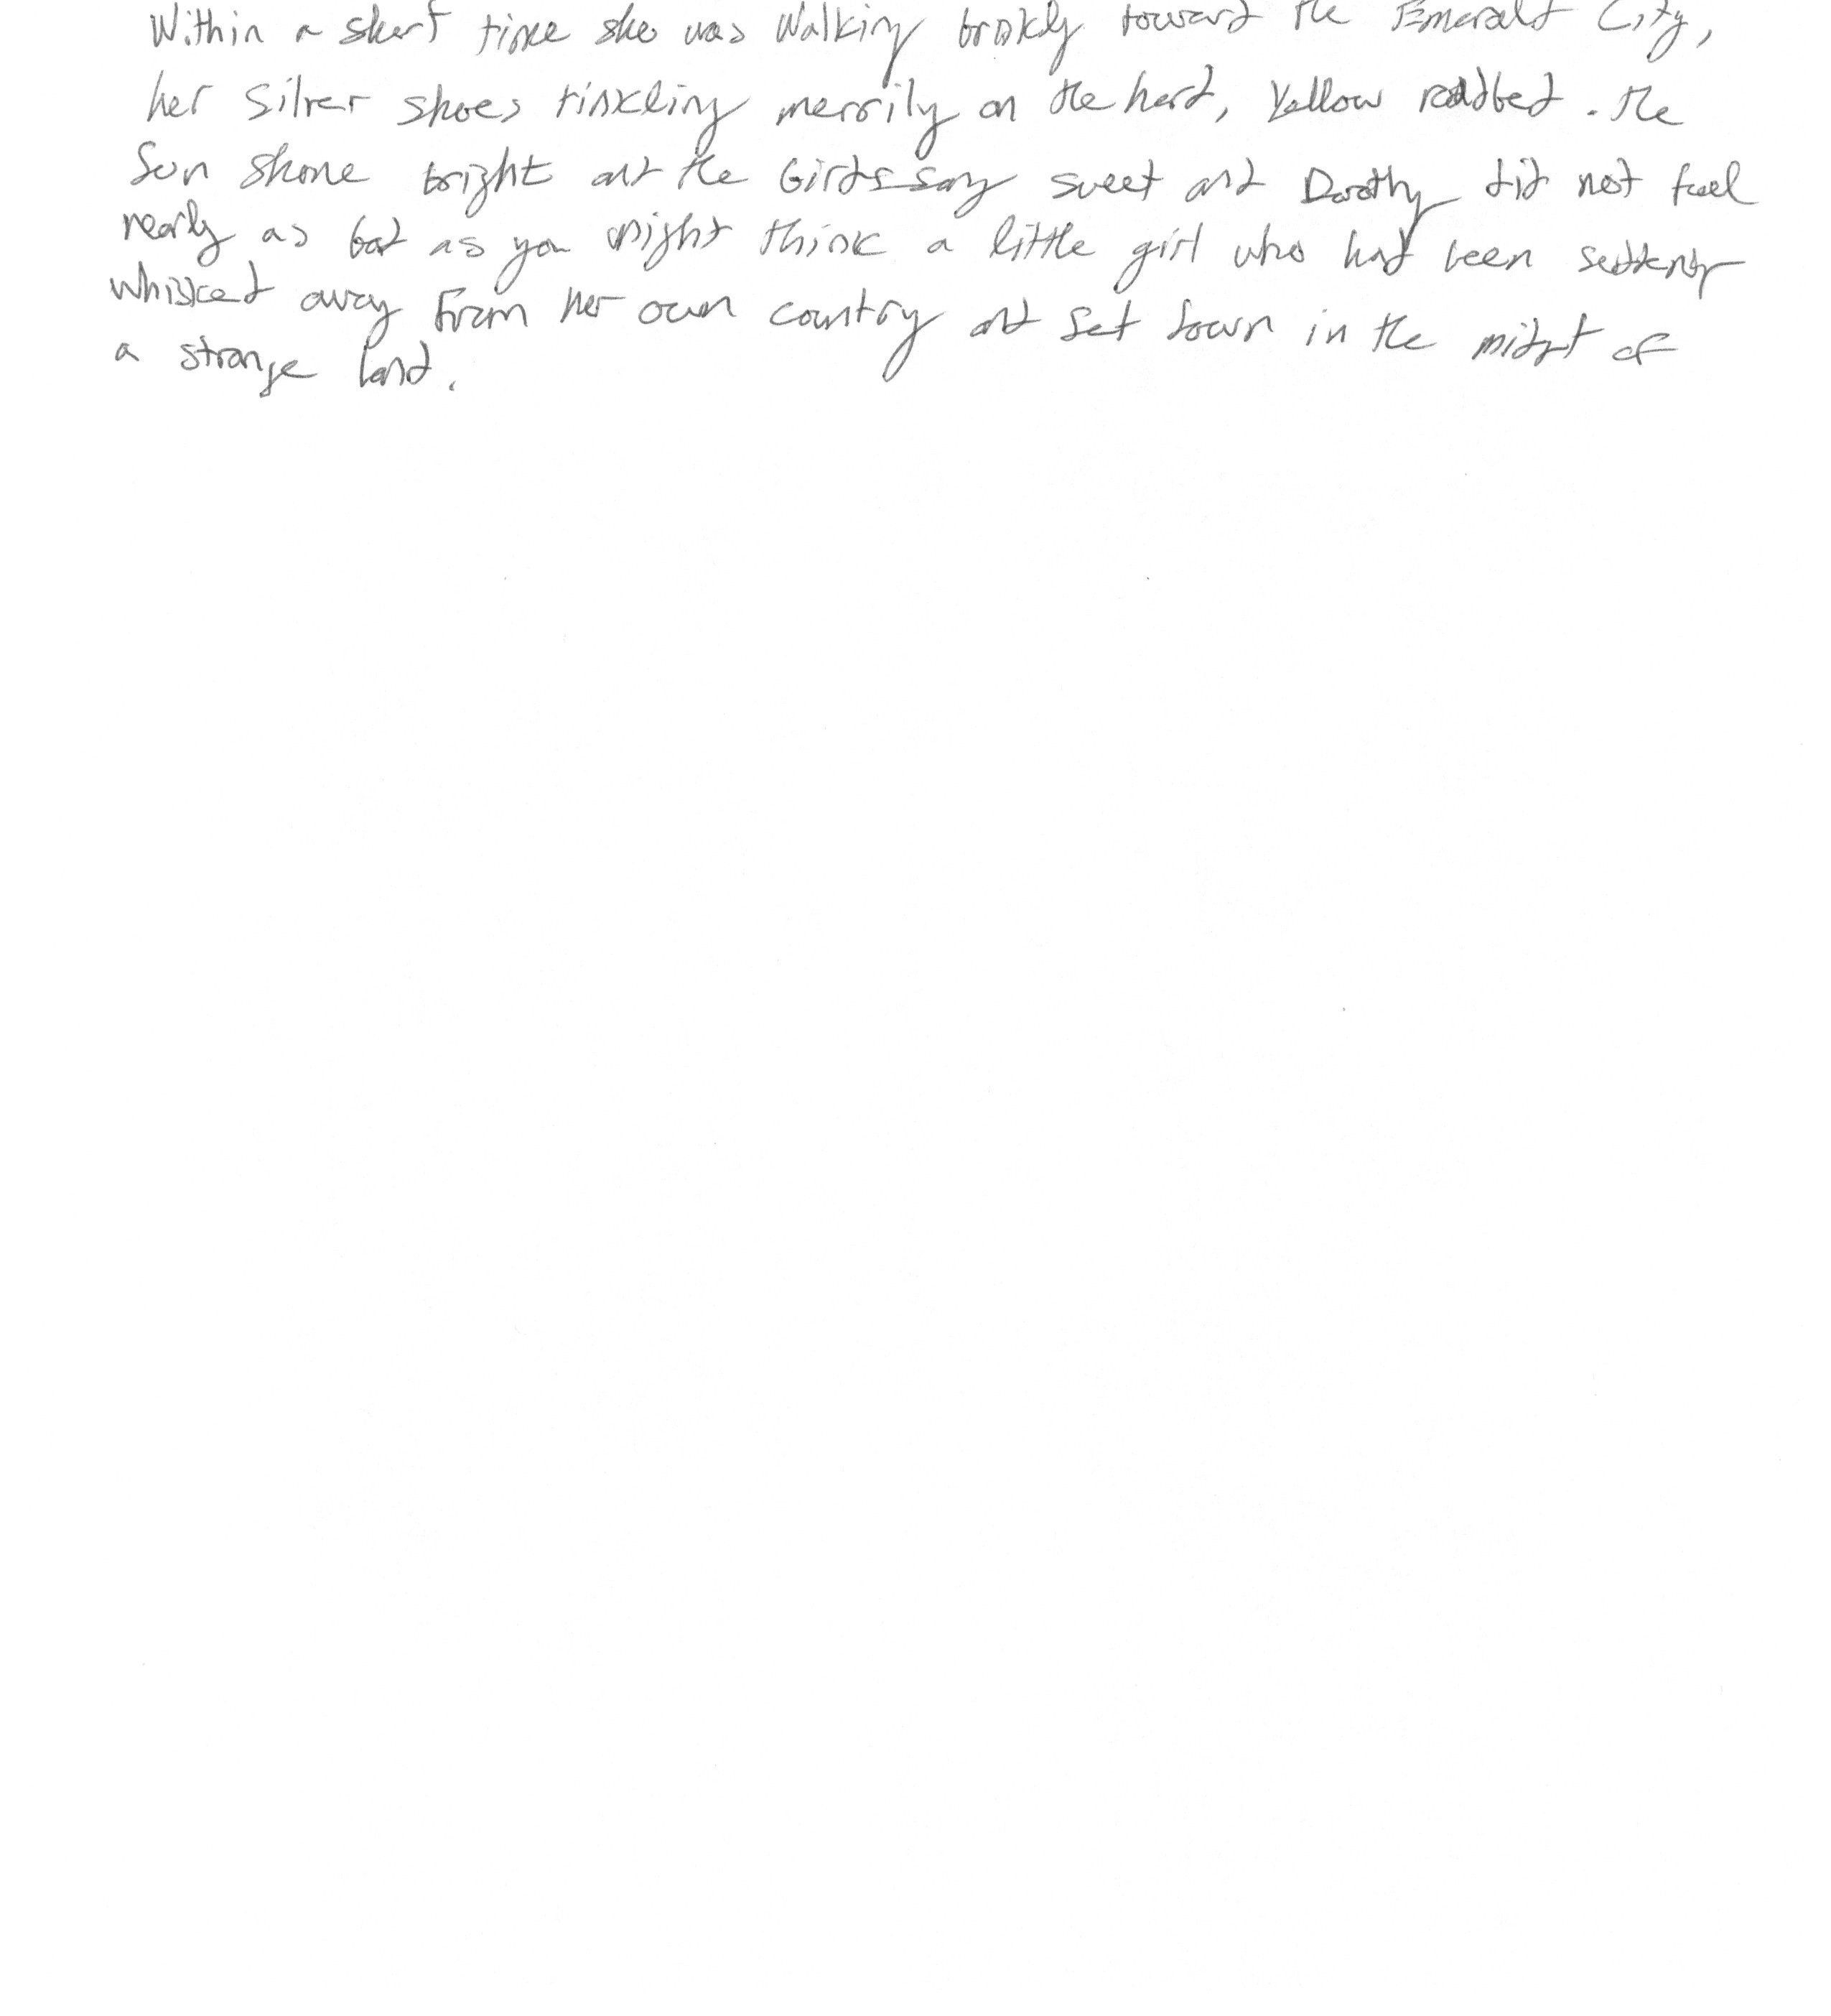 Within a short time she was walking briskly toward the Emerald City,
her Silver shoes tinkling merrily on the hard, yellow roadbed. The
Sun shone bright and the birds sang sweet and Dorothy did not feel
nearly as bad as you might think a little girl who had been suddenly
whisked away from her own country and set down in the midst of
a strange land.